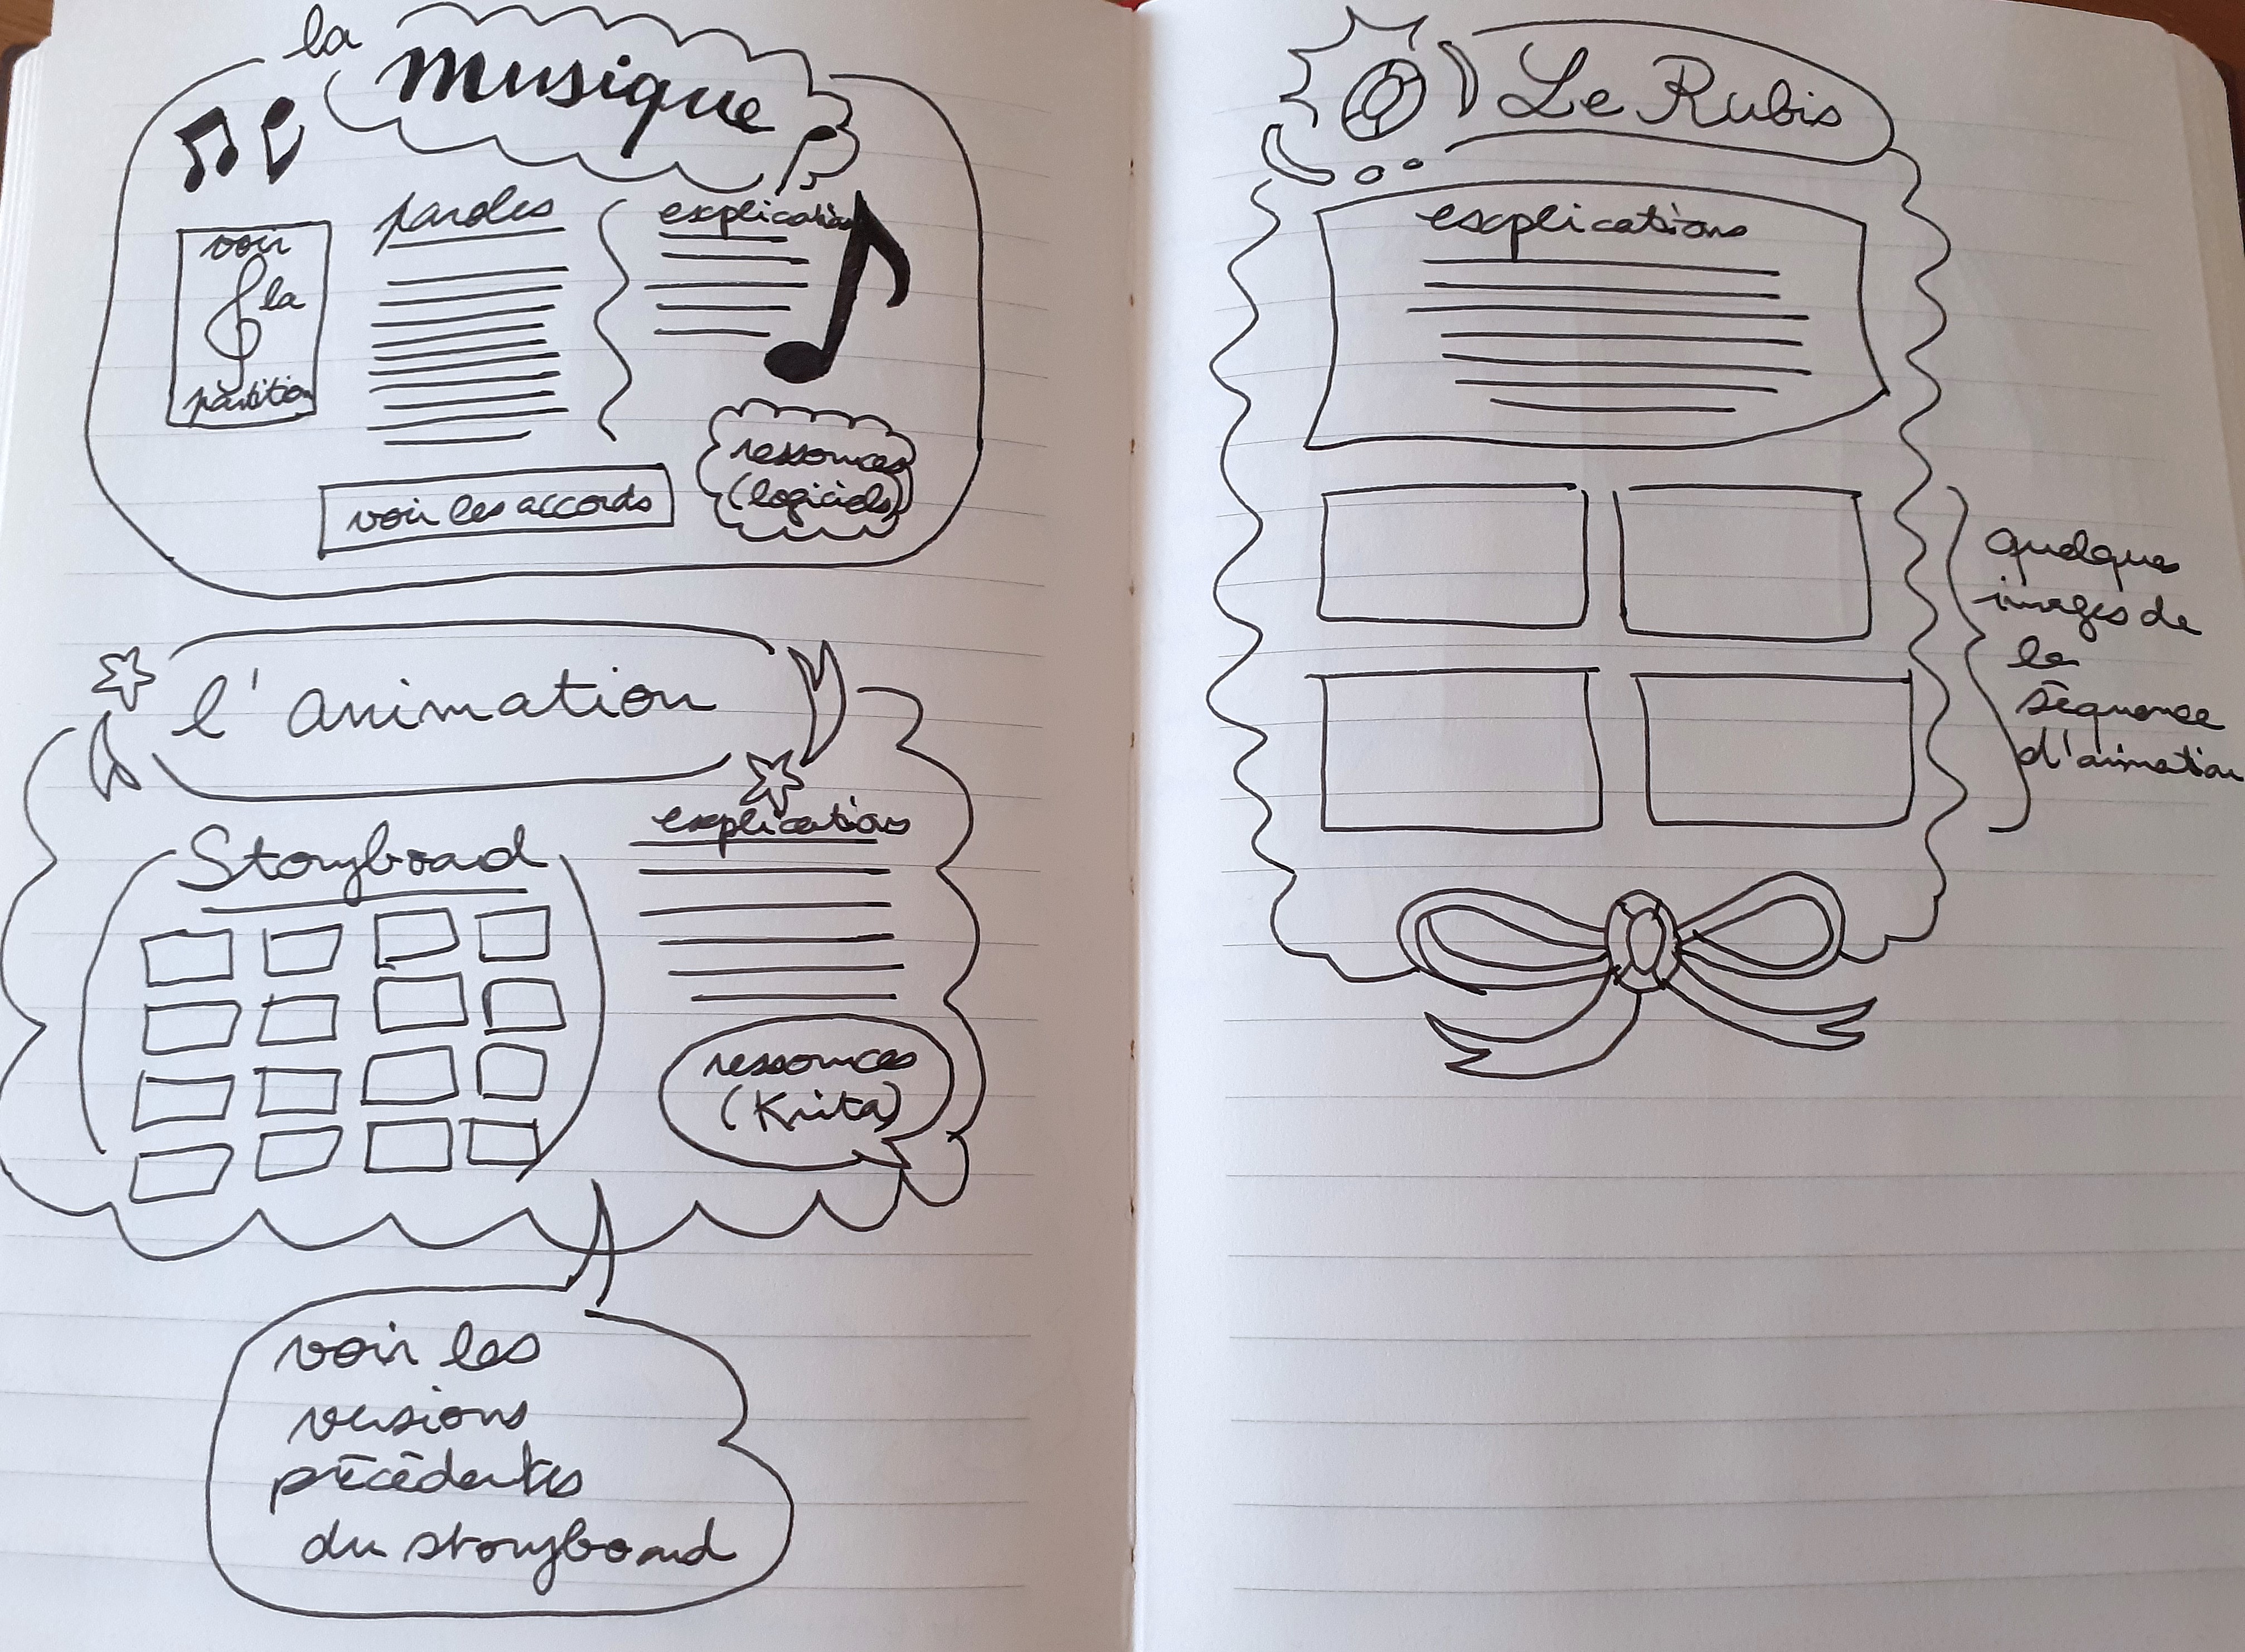 la
musique
voir
la
partition
paroles
explications
voir les accords
ressources
(logiciels)
l'animation
Storyboard
explications
ressources
(Krita)
voir les
versions
précédentes
du storyboard
Le Rubis
explications
quelques
images de
la
séquence
d'animation